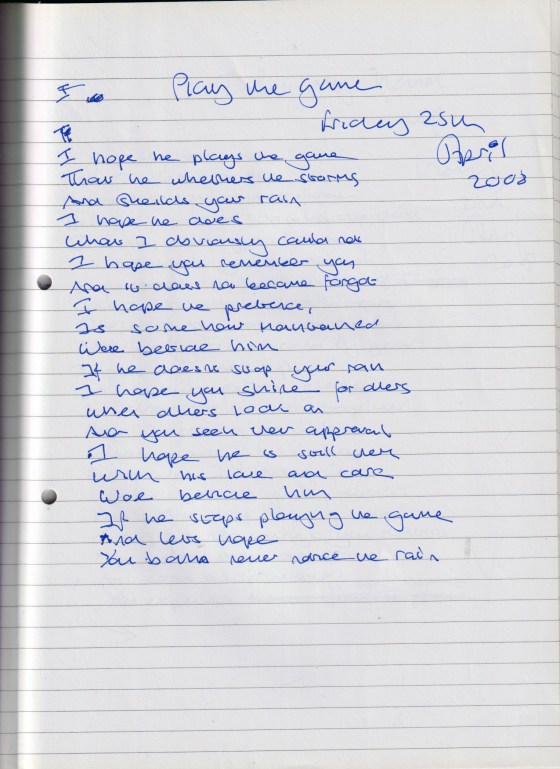 Play the game
Friday 25th
April
2008
I hope he plays the game
That he whethers the storms
And sheilds your rain
I hope he does
What I obviously could not
I hope you remember you
And it does not become forgot
I hope the pretence,
Is some how maintained
Woe betide him
If he doesn't stop your rain
I hope you shine for others
when others look on
And you seek their approval
I hope he is still there
With his love and care
Woe betide him
If he stops playing the game
And lets hope
You both never notice the rain